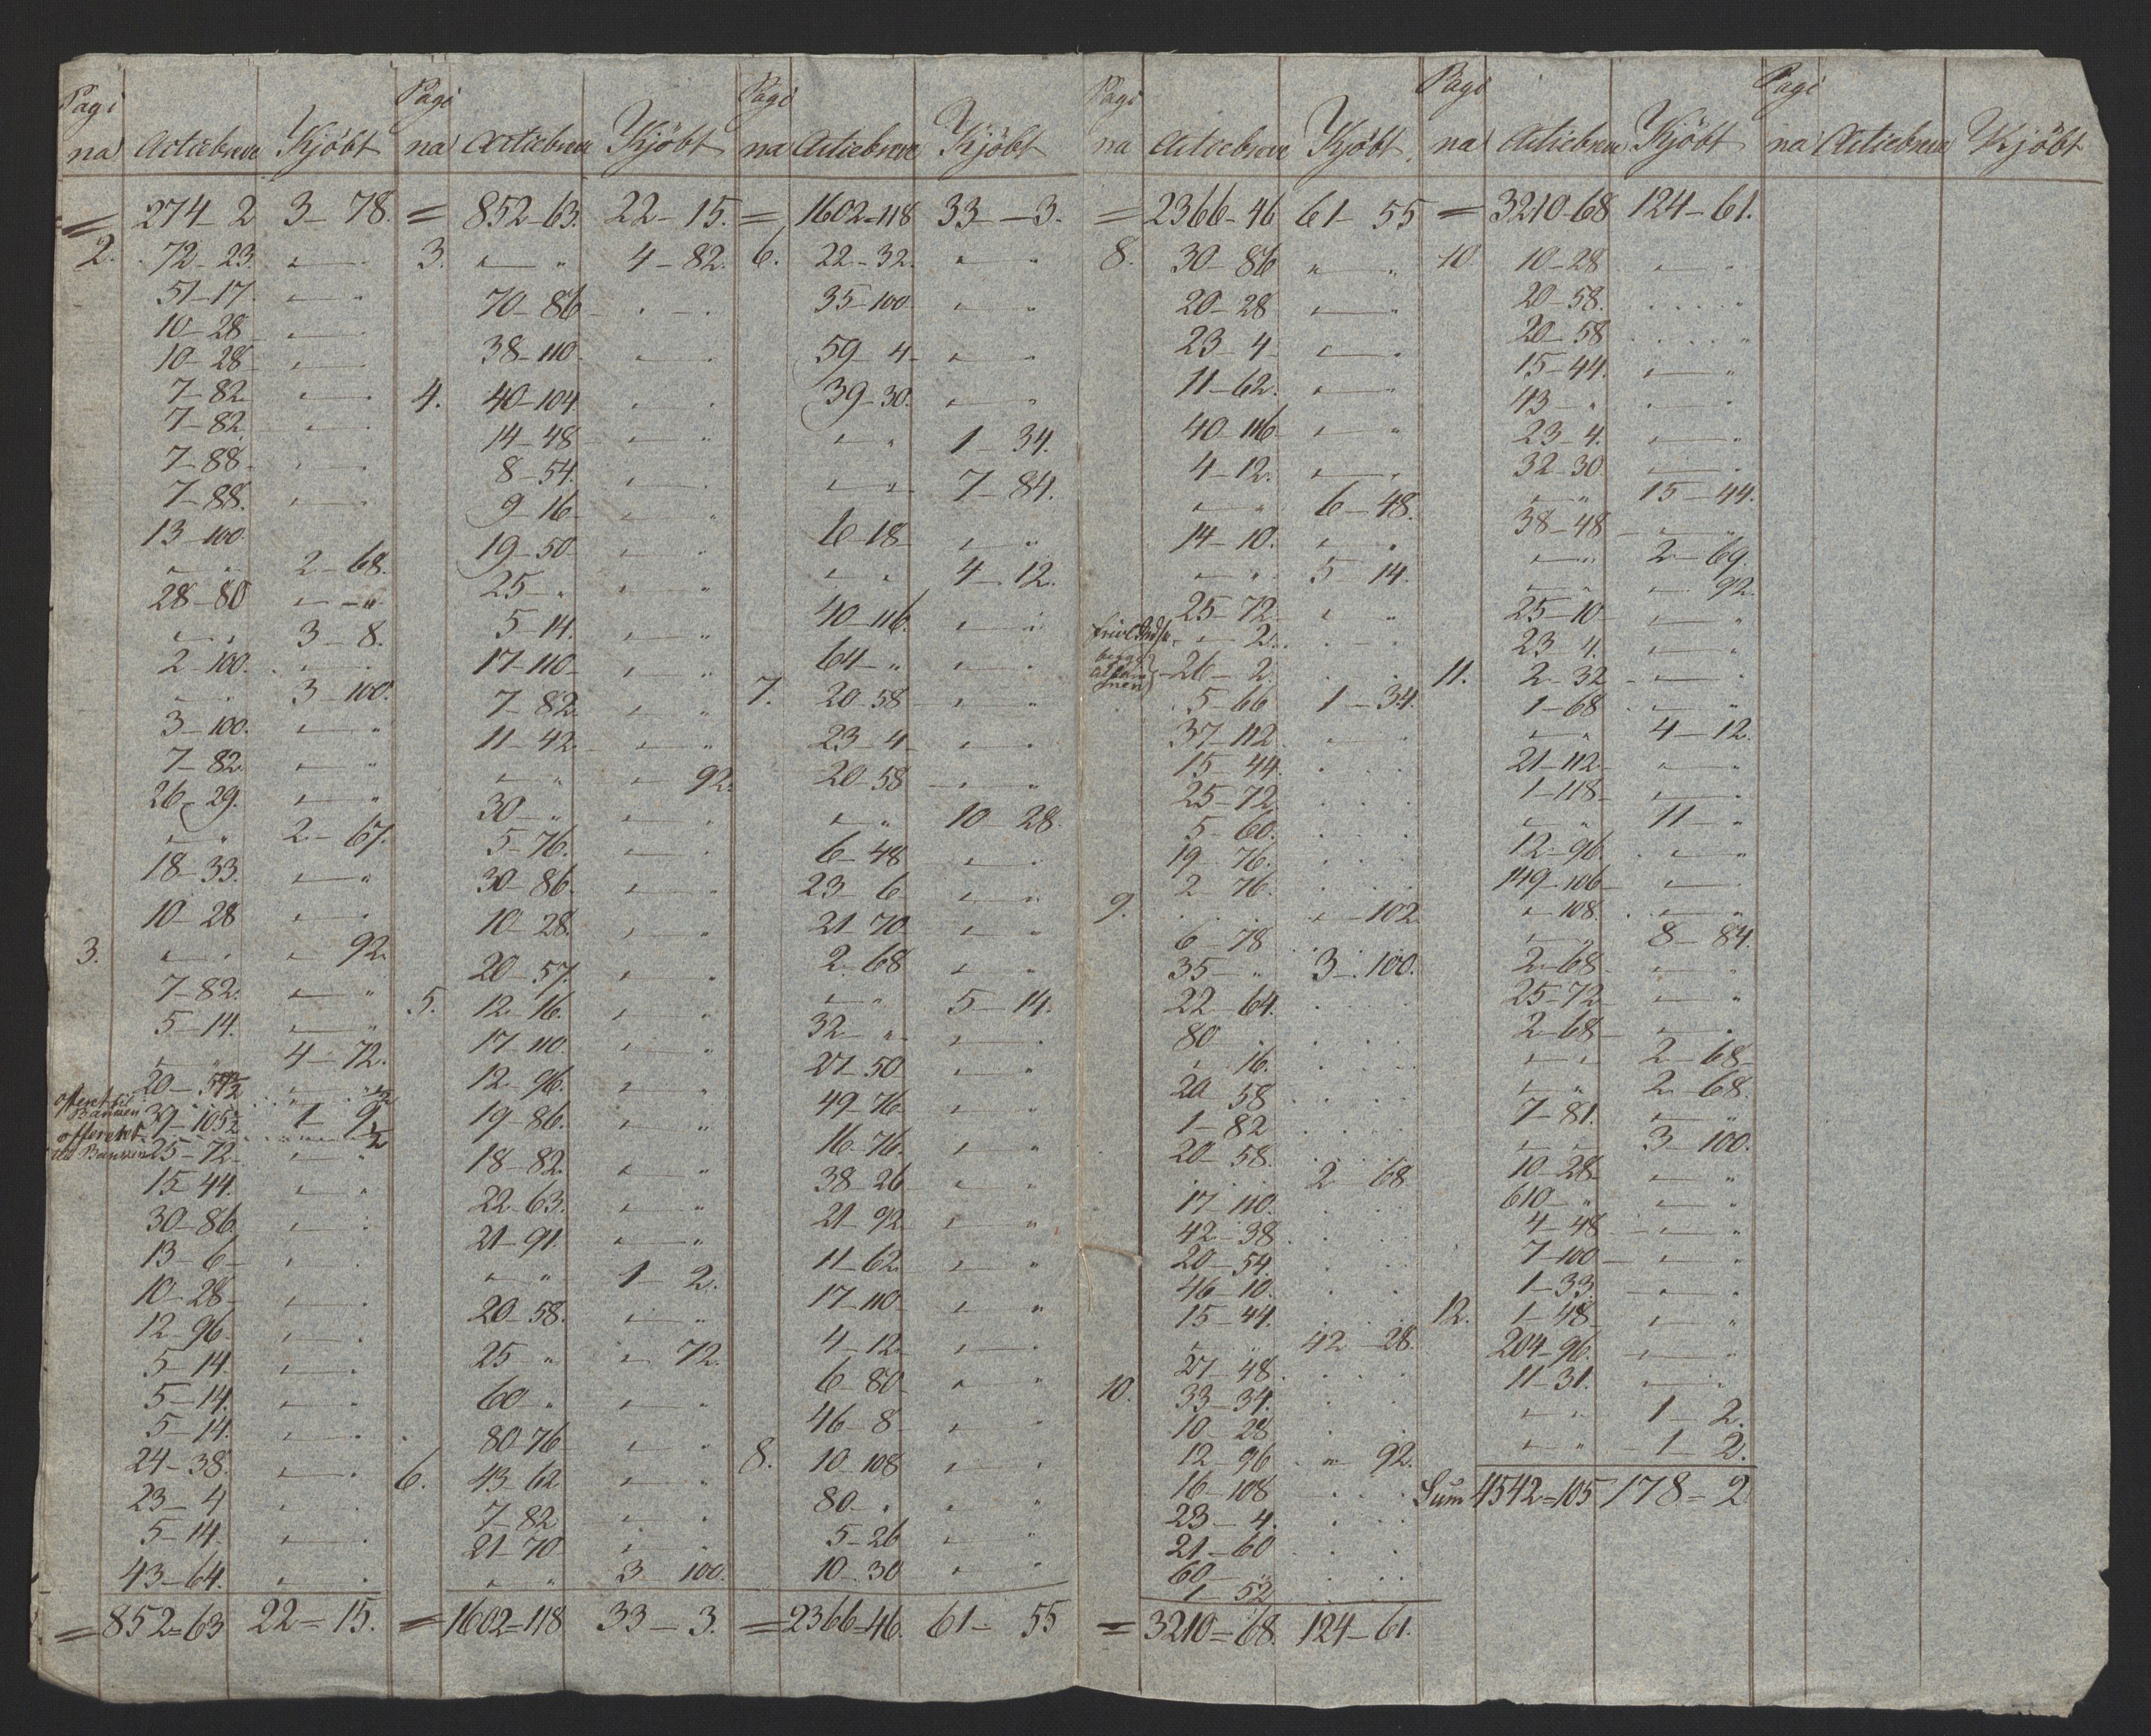 Pagina Actiebreve Kjöbt
= 274-2 3-78.
2. 72-23.
51-17.
10-28
10-28
7-82
7-82
7-88.
7-88.
13-100.
2-68.
28-80
3-8.
2-100.
3-100.
3-100.
7-82.
26-29.
2-67.
18-33.
10-28
3. 92.
7-82.
5-14.
4-72.
20-
offeret til Banven 39-105½ 1-9½
25-72
15-44.
30-86
13-6
10-28
12-96
5-14.
5-14.
5-14.
24-38.
23-4
5-14.
43-64.
= 852=63 22=15.
Pagina Actiebreve Kjöbt
= 852-63. 22-15.
3. 4-82.
70-86
38-110
4. 40-104
14-48
8-54.
9-16
19-50
25-"
5-14.
17-110
7-82.
11-42.
92.
30-"
5-76.
30-86.
10-28.
20-57.
5. 12-16.
17-110.
12-96.
19-86.
18-82.
22-63.
21-91.
1-2.
20-58.
25-" 72.
60-"
80-76
6. 43-62
7-82
21-70
3-100.
=1602=118 33-3.
Pagina Actiebreve Kjöbt
= 1602=118 33-3.
6. 22-32.
35-100
59-4
39-30.
1-34.
7-84.
6-18
4-12.
40-116.
64-"
7. 20-58
23-4
20-58
10-28.
6-48
23-6
21-70
2-68
5-14.
32-"
27-50
49-76
16-76.
38-26
21-92
11-62.
17-110
4-12
6-80
46-8
8. 10-108
80-"
5-26
10-30
=2366=46. 61-55
Pagina Actiebreve Kjöbt
= 2366-46 61-55
8. 30-86
20-28
23-4
11-62.
40-116
4-12.
6-48.
14-10.
5-14.
25-72
2.
26-2.
5-66 1-34.
37-112
15-44.
25-72
5-60.
19-76.
2-76.
9. 102.
6-78
35-" 3-100.
22-64.
80
16.
20 58
1-82
20-58.
2-68
17-110.
42-38
20-54.
46-10.
15-44.
42-28.
27-48
10. 33-34.
10-28
12-96 92.
16-108
23-4.
21-60
60-"
1-52
=3210=68. 124-61.
Pagina Actiebreve Kjöbt
= 3210-68 124-61.
10. 10-28
20-58.
20-58
15-44.
43-"
23-4.
32-30
15-44.
38-48
2-69.
92.
25-10
23 4.
11. 2-32
1-68
4-12.
21-112
1-118
11-"
12-96.
149-106
108.
8-84.
2-68
25-72
2-68
2-68
2-68.
7-81.
3-100.
10-28
610-"
4-48
7-100
1-33.
12. 1-48
204-96.
11-31.
1-2.
1-2.
Sum 4542=105 178=2
Pagina Actiebreve Kjöbt